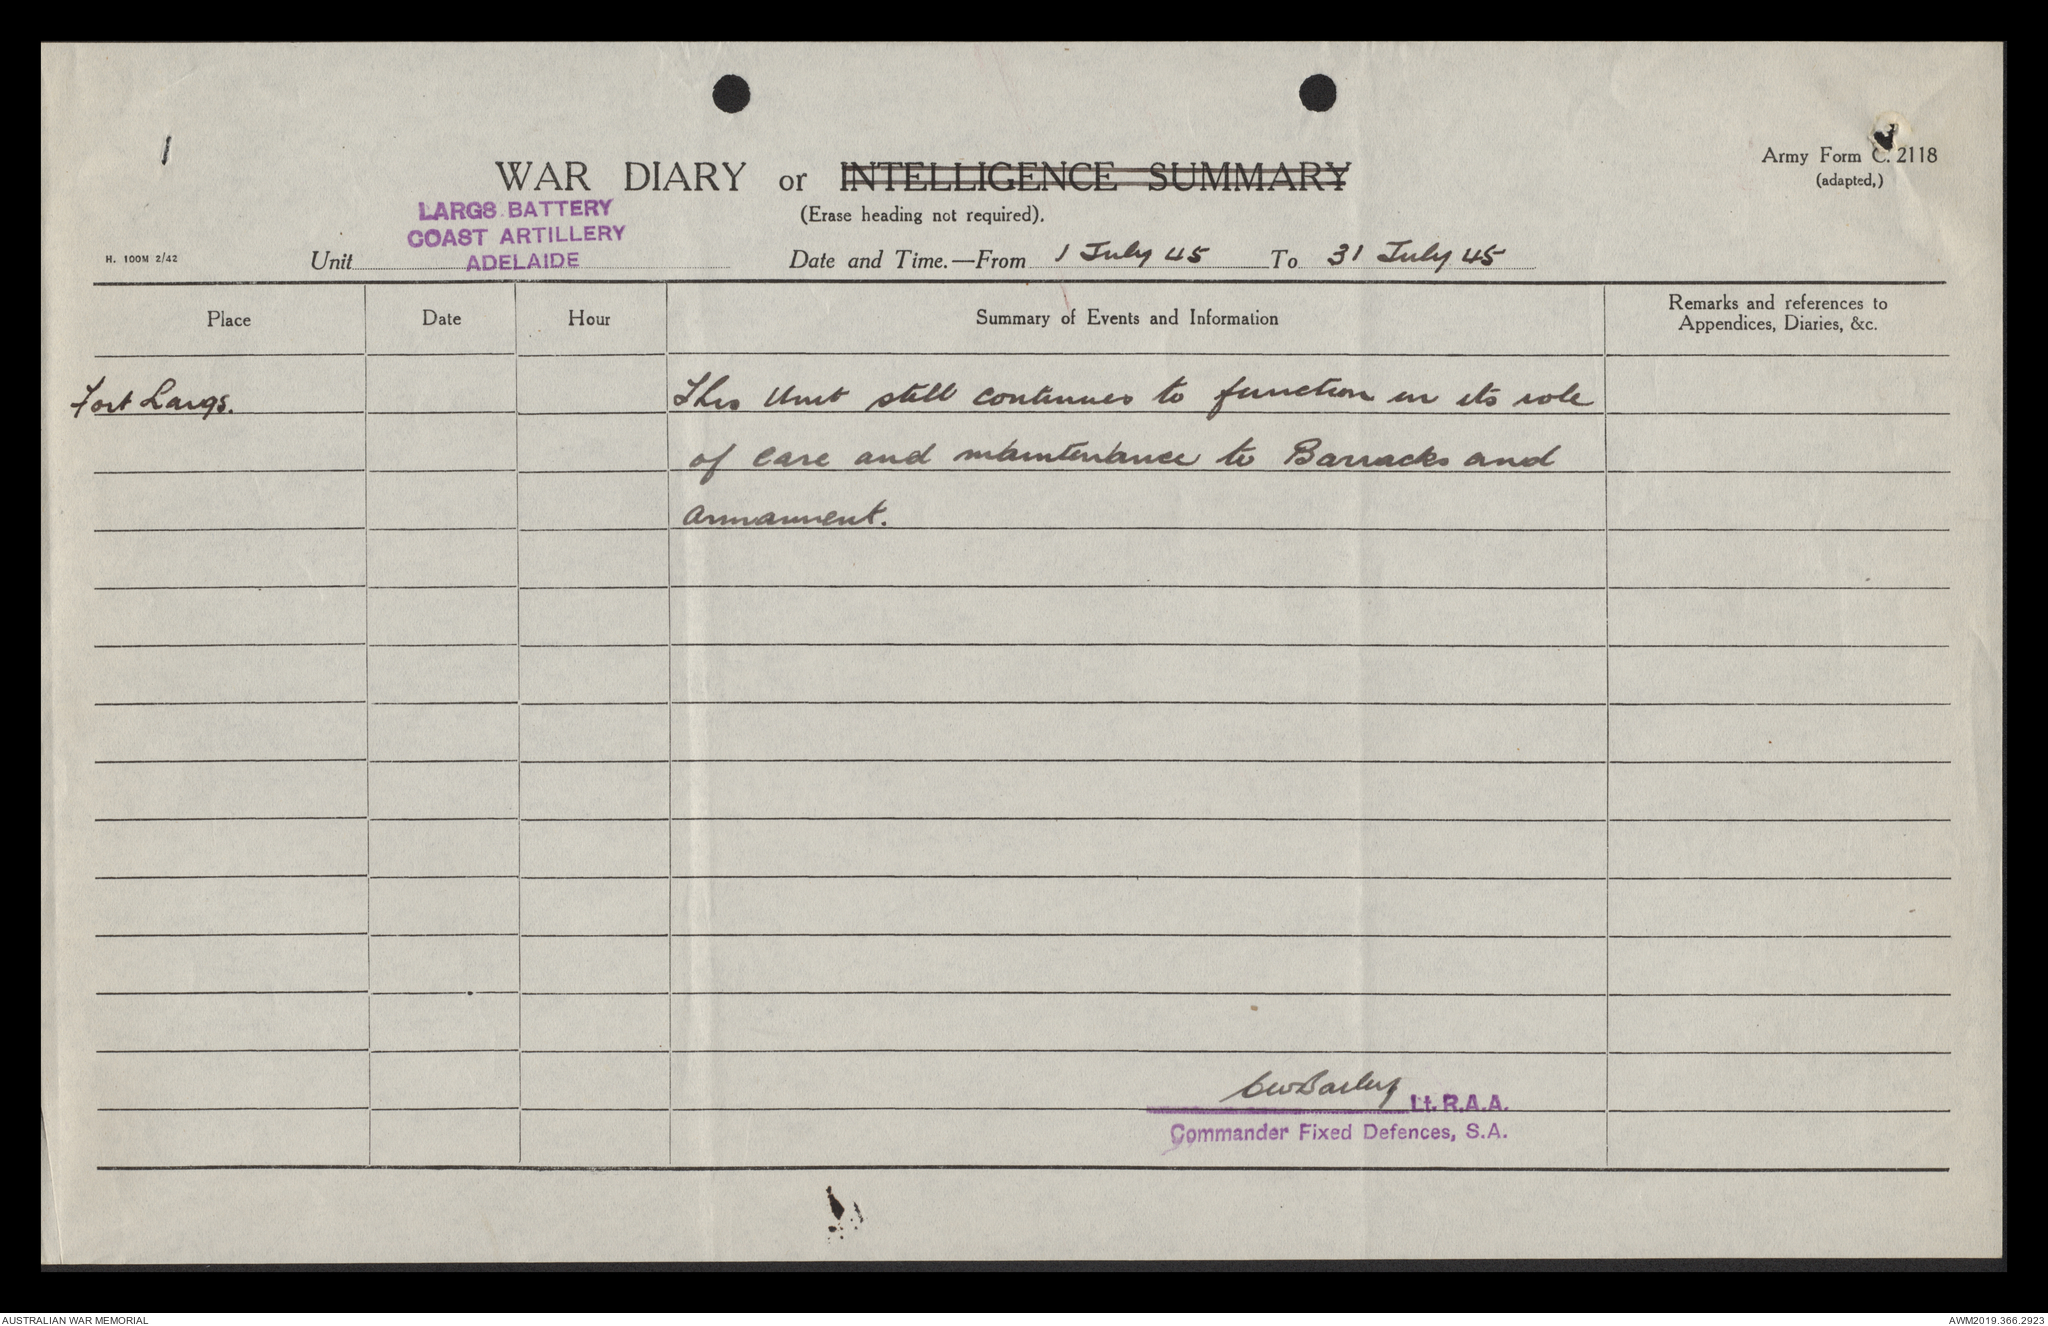 1
Army Form C. 2118
(adapted,)
WAR DIARY or INTELLIGENCE SUMMARY
(Erase heading not required).
LARGS BATTERY
COAST ARTILLERY
ADELAIDE
H. 100M 2/42
Unit
Date and Time.—From 1 July 45 To 31 July 45
Place Date Hour Summary of Events and Information Remarks and references to
Appendices, Diaries, &c.
Fort Largs. This Unit still continues to function in its role
of care and maintenance to Barracks and
armament.
Lt. R.A.A.
Commander Fixed Defences, S.A.
AUSTRALIAN WAR MEMORIAL
AWM2019.366.2923